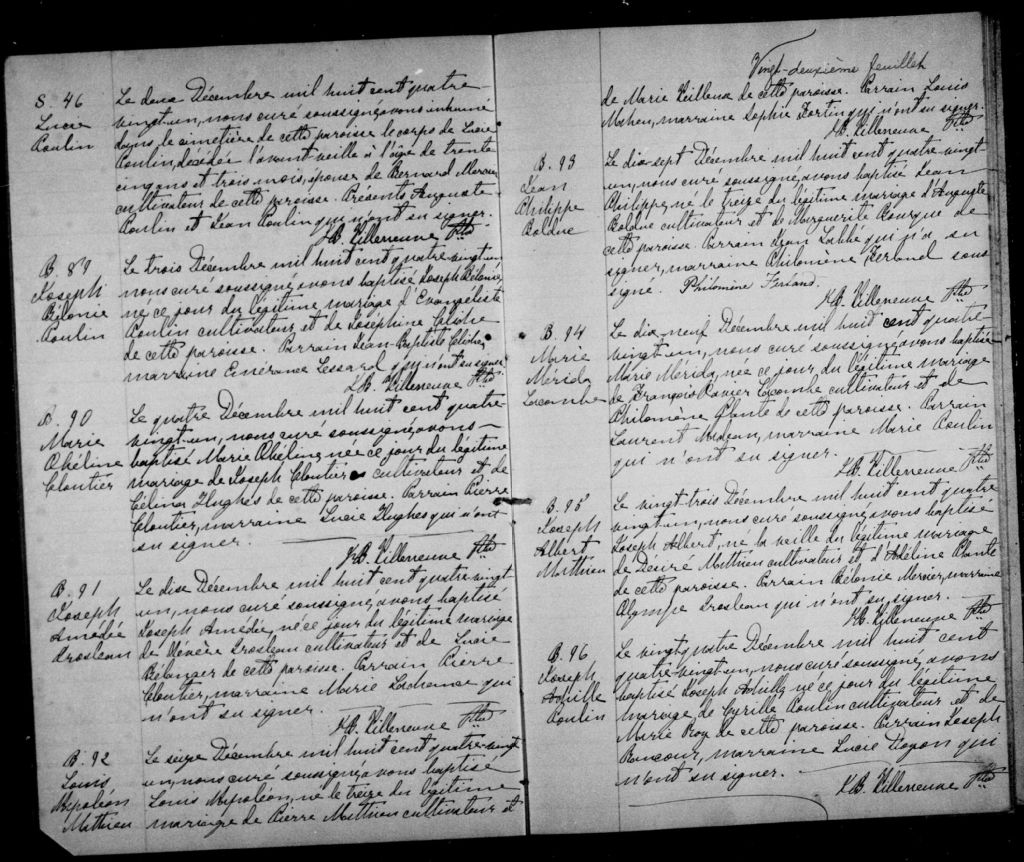 S. 46
Lucie
Poulin
Le deux Décembre mil huit cent quatre-
vingt-un, nous curé soussigné, avons inhumé
dans le cimetière de cette paroisse le corps de Lucie
Poulin, décédée l'avant veille à l'âge de trente
cinq ans et trois mois, épouse de Bernard Mercier
cultivateur de cette paroisse. Présents Auguste
Poulin et Jean Poulin qui n'ont su signer.
J.B. Villeneuve Ptre
B. 89
Joseph
Bélonie
Poulin
Le trois Décembre mil huit cent quatre-vingt-un
nous curé soussigné, avons baptisé Joseph Bélonie,
né ce jour du légitime mariage d'Evangéliste
Poulin cultivateur, et de Joséphine Cliche
de cette paroisse. Parrain Jean-Baptiste Cliche,
marraine Emérance Lessard qui n'ont su signer.
J.B. Villeneuve Ptre
B. 90
Marie
Obéline
Cloutier
Le quatre Décembre mil huit cent quatre
vingt-un, nous curé soussigné, avons
baptisé Marie Obéline, née ce jour du légitime
mariage de Joseph Cloutier cultivateur et de
Célina Hughes de cette paroisse. Parrain Pierre
Cloutier, marraine Lucie Hughes qui n'ont
su signer.
J.B. Villeneuve Ptre
B. 91
Joseph
Amédée
Drosleau
Le dix Décembre mil huit cent quatre-vingt
un, nous curé soussigné, avons baptisé
Joseph Amédée, né ce jour du légitime mariage
de Drosleau cultivateur et de Lucie
Bélanger de cette paroisse. Parrain Pierre
Cloutier, marraine Marie Lachance qui
n'ont su signer.
J.B. Villeneuve Ptre
B. 92
Louis
Napoléon
Mathieu
Le seize Décembre mil huit cent quatre-vingt
un, nous curé soussigné, avons baptisé
Louis Napoléon, né le treize du légitime
mariage de Pierre Mathieu cultivateur et
Vingt-deuxième feuillet
de Marie Veilleux de cette paroisse. Parrain Louis
Maheu, marraine Sophie Fortin qui n'ont su signer.
J.B. Villeneuve Ptre
B. 93
Jean
Philippe
Bolduc
Le dix-sept Décembre mil huit cent quatre-vingt-
un, nous curé soussigné, avons baptisé Jean
Philippe, né le treize du légitime mariage d'Auguste
Bolduc cultivateur et de Marguerite Bourque de
cette paroisse. Parrain Jean Labbé qui n'a su
signer, marraine Philomène Ferland sous-
signé. Philomène Ferland.
J.B. Villeneuve Ptre
B. 94
Marie
Mérida
Lacombe
Le dix neuf Décembre mil huit cent quatre-
vingt-un, nous curé soussigné, avons baptisé
Marie Mérida, née ce jour du légitime mariage
de François Xavier Lacombe cultivateur et de
Philomène Plante de cette paroisse. Parrain
Laurent Nadeau, marraine Marie Poulin
qui n'ont su signer.
J.B. Villeneuve Ptre
B. 95
Joseph
Albert
Mathieu
Le vingt trois Décembre mil huit cent quatre
vingt-un, nous curé soussigné, avons baptisé
Joseph Albert, né la veille du légitime mariage
de Désiré Mathieu cultivateur et d'Adéline Plante
de cette paroisse. Parrain Bélonie Mercier, marraine
Olympe Drosleau qui n'ont su signer.
J.B. Villeneuve Ptre
B. 96
Joseph
Achille
Poulin
Le vingt quatre Décembre mil huit cent
quatre-vingt-un, nous curé soussigné, avons
baptisé Joseph Achille, né ce jour du légitime
mariage de Cyrille Poulin cultivateur et de
Marie Roy de cette paroisse. Parrain Joseph
marraine Lucie Doyon qui
n'ont su signer.
J.B. Villeneuve Ptre